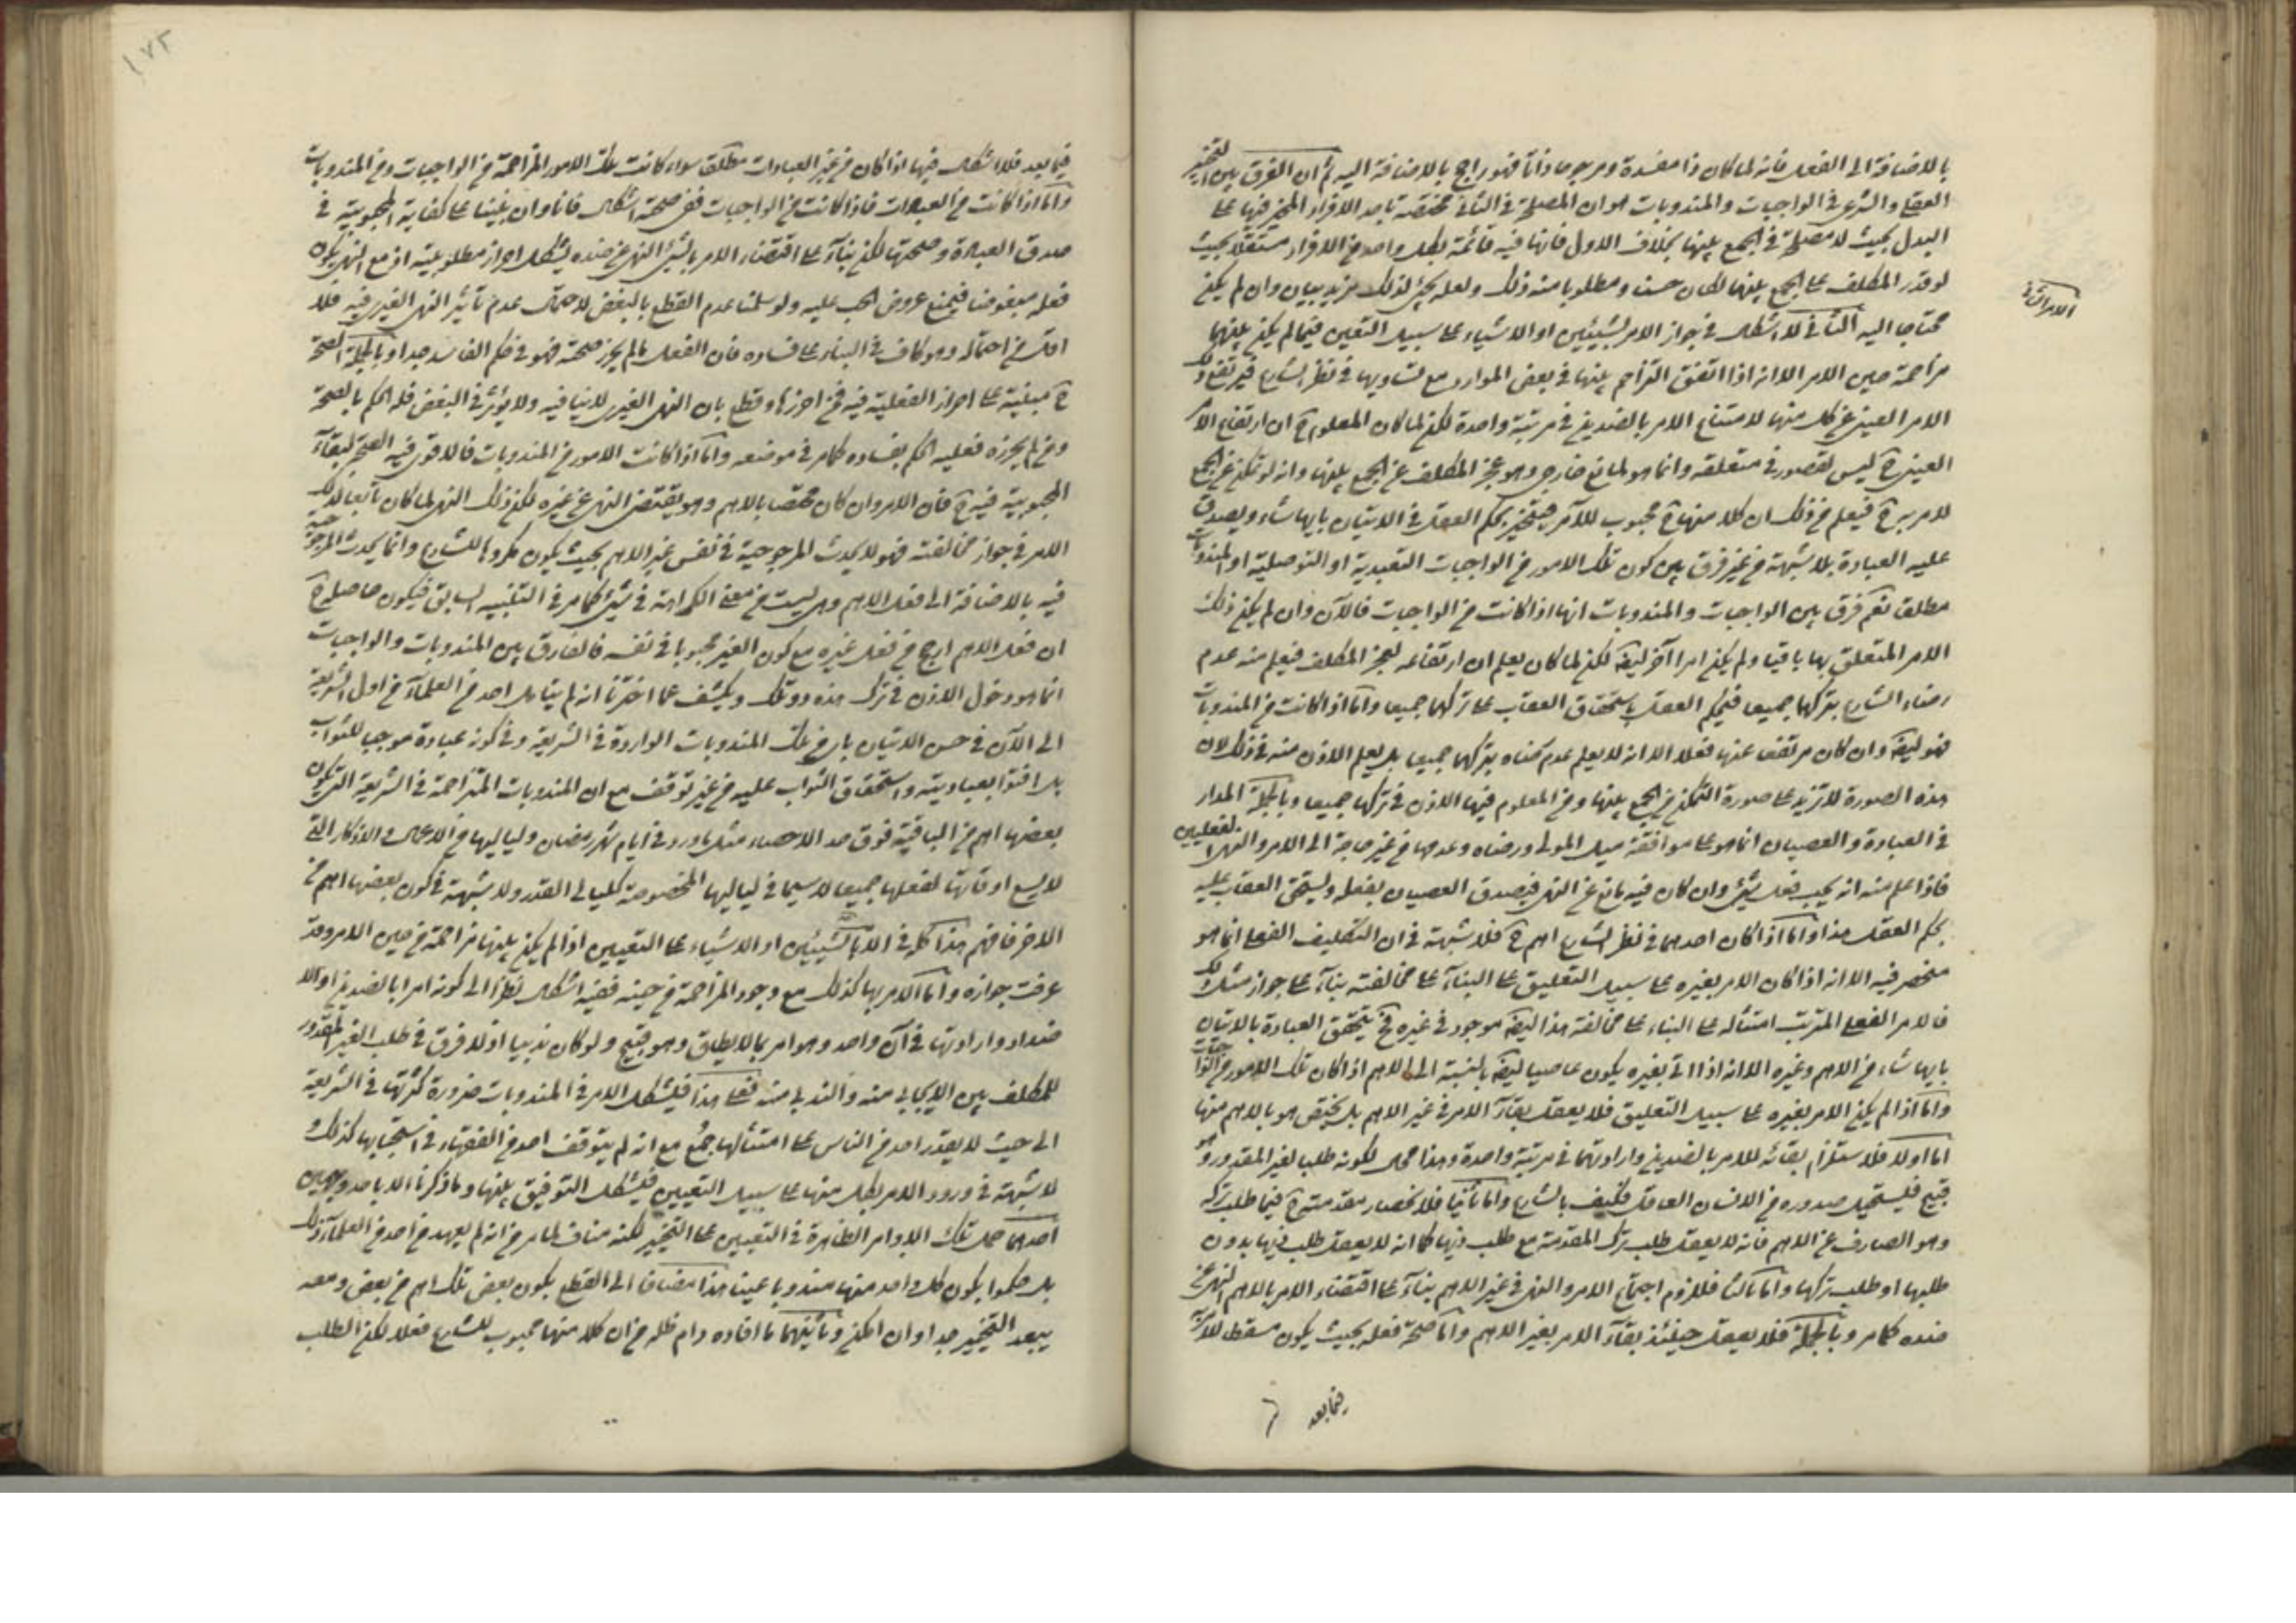 بالاضافة الى الفعل فانه لما كان ذا مفسدة ومرجوحا ذاتا فهو راجح بالاضافة اليه ثم ان الفرق بين التخيير
العقلي والشرعي في الواجبات والمندوبات هو ان المصلحة في الثاني مختصة باحد الافراد المخير فيها على
البدل بحيث لا مصلحة في الجمع بينها بخلاف الاول فانها فيه قائمة بكل واحد من الافراد مستقلا بحيث
لو قدر المكلف على الجمع بينها لكان حسنا ومطلوبا منه ذلك ولعله يجيء لذلك مزيد بيان وان لم يكن
محتاجا اليه الثاني لا اشكال في جواز الامر بشيئين او الاشياء على سبيل التعيين فيما لم يكن بينهما
الامر الثاني
مزاحمة حين الامر الا انه اذا اتفق التزاحم بينها في بعض الموارد مع تساويها في نظر الشارع فيرتفع ذلك
الامر العيني عن كل منها لامتناع الامر بالضدين في مرتبة واحدة لكن لما كان المعلوم ح ان ارتفاع الامر
العيني ح ليس لقصور في متعلقه وانما هو لمانع خارجي وهو عجز المكلف عن الجمع بينها وانه لو تمكن من الجمع
لامر به ح فيعلم من ذلك ان كلا منها ح محبوب للآمر فيتخير بحكم العقل في الاتيان بايها شاء ويصدق
عليه العبادة بلا شبهة من غير فرق بين كون تلك الامور من الواجبات التعبدية او التوصلية او المندوبات
مطلقا نعم فرق بين الواجبات والمندوبات انها اذا كانت من الواجبات فالآن وان لم يكن ذلك
الامر المتعلق بها باقيا ولم يكن امرا آخر ايضا لكن لما كان يعلم ان ارتفاعه لعجز المكلف فيعلم منه عدم
رضاء الشارع بتركها جميعا فيحكم العقل باستحقاق العقاب على تركهما جميعا واما اذا كانت من المندوبات
فهو ايضا وان كان مرتفعا عنها فعلا الا انه لا يعلم عدم رضاه بتركها جميعا بل يعلم الاذن منه في ذلك لان
هذه الصورة لا تزيد على صورة التمكن من الجمع بينها ومن المعلوم فيها الاذن في تركها جميعا وبالجملة المدار
في العبادة والعصيان انما هو على موافقة ميل المولى ورضاه وعدمها من غير حاجة الى الامر والنهي الفعليين
فاذا علم منه انه يحب فعل شيء وان كان فيه مانع عن النهي فيصدق العصيان بفعله ويستحق العقاب عليه
بحكم العقل هذا واما اذا كان احدهما في نظر الشارع اهم ح فلا شبهة في ان التكليف الفعلي انما هو
منحصر فيه الا انه اذا كان الامر بغيره على سبيل التعليق على البناء على مخالفته بناء على جواز مثل ذلك
فالامر الفعلي المترتب امتثاله على البناء على مخالفة هذا ايضا موجود في غيره فح يتحقق العبادة بالاتيان
بايها شاء من الاهم وغيره الا انه اذا اتى بغيره يكون عاصيا ايضا بالنسبة الى الاهم اذا كان تلك الامور من الواجبات
واما اذا لم يكن الامر بغيره على سبيل التعليق فلا يعقل بقاء الامر في غير الاهم بل يختص هو بالاهم منها
اما اولا فلاستلزام بقائه للامر بالضدين وارادتهما في مرتبة واحدة وهذا محال لكونه طلبا لغير المقدور وهو
قبيح فيستحيل صدوره من الانسان العاقل فكيف بالشارع واما ثانيا فلانحصار مقدمته ح فيما طلب تركه
وهو الصارف عن الاهم فانه لا يعقل طلب ترك المقدمة مع طلب ذيها كما انه لا يعقل طلب ذيها بدون
طلبها او طلب تركها واما ثالثا فللزوم اجتماع الامر والنهي في غير الاهم بناء على اقتضاء الامر بالاهم النهي عن
ضده كما مر وبالجملة فلا يعقل حينئذ بقاء الامر بغير الاهم واما صحة فعله بحيث يكون مسقطا للامر به
فيما بعد
١٧٢
فيما بعد فلا اشكال فيها اذا كان من غير العبادات مطلقا سواء كانت تلك الامور المتزاحمة من الواجبات ومن المندوبات
واما اذا كانت من العبادات فاذا كانت من الواجبات ففي صحته اشكال فانا وان بنينا على كفاية المحبوبية في
صدق العبادة وصحتها لكن بناء على اقتضاء الامر بالشيء النهي عن ضده يشكل احراز مطلوبيته اذ مع النهي يكون
فعله مبغوضا فيمنع عروض الحب عليه ولو سلمنا عدم القطع بالبغض لاحتمال عدم تأثير النهي الغيري فيه فلا
اقل من احتماله وهو كاف في البناء على فساده فان الفعل ما لم يحرز صحته فهو في حكم الفاسد جدا وبالجملة الصحة
ح مبنية على احراز الفعلية فيه فمن احرزها وقطع بان النهي الغيري لا ينافيه ولا يؤثر في البغض فله الحكم بالصحة
ومن لم يحرزه فعليه الحكم بفساده كما مر في موضعه واما اذا كانت الامور من المندوبات فالاقوى فيه الصحة لبقاء
المحبوبية فيه ح فان الامر وان كان مختصا بالاهم وهو يقتضي النهي عن غيره لكن ذلك النهي لما كان تابعا لذلك
الامر في جواز مخالفته فهو لا يحدث المرجوحية في نفس غير الاهم بحيث يكون مكروها للشارع وانما يحدث المرجوحية
فيه بالاضافة الى فعل الاهم وهي ليست من معنى الكراهة في شيء كما مر في التنبيه السابق فيكون حاصله ح
ان فعل الاهم ارجح من فعل غيره مع كون الغير محبوبا في نفسه فالفارق بين المندوبات والواجبات
انما هو دخول الاذن في ترك هذه دون تلك ويكشف عما اخترنا انه لم يتأمل احد من العلماء من اول الشريعة
الى الآن في حسن الاتيان باي من تلك المندوبات الواردة في الشريعة وفي كونه عبادة موجبا للثواب
بل افتوا بعباديته واستحقاق الثواب عليه من غير توقف مع ان المندوبات المتزاحمة في الشريعة التي يكون
بعضها اهم من الباقية فوق حد الاحصاء مثل ما ورد في ايام شهر رمضان ولياليها من الاعمال والاذكار التي
لا يسع اوقاتها لفعلها جميعا لا سيما في لياليها المخصوصة كليالي القدر ولا شبهة في كون بعضها اهم من
الآخر فافهم هذا كله في الامر بالشيئين او الاشياء على التعيين اذا لم يكن بينها مزاحمة في حين الامر وقد
عرفت جوازه واما الامر بها كذلك مع وجود المزاحمة في حينه ففيه اشكال نظرا الى كونه امرا بالضدين او الا
ضداد وارادتها في آن واحد وهو امر بما لا يطاق وهو قبيح ولو كان ندبيا اذ لا فرق في طلب الغير المقدور
للمكلف بين الايجابي منه والندبي منه فعلى هذا فيشكل الامر في المندوبات ضرورة كثرتها في الشريعة
الى حيث لا يقدر احد من الناس على امتثالها جمع مع انه لم يتوقف احد من الفقهاء في استحبابها كذلك و
لا شبهة في ورود الامر بكل منها على سبيل التعيين فيشكل التوفيق بينها وما ذكرنا الا باحد وجهين
احدهما حمل تلك الاوامر الظاهرة في التعيين على التخيير لكنه مناف لما مر من انه لم يعهد من احد من العلماء ذلك
بل حكموا بكون كل واحد منها مندوبا عينا هذا مضافا الى القطع بكون بعض تلك اهم من بعض ومعه
يبعد التخيير جدا وان امكن وثانيهما ما افاده دام ظله من ان كلا منها محبوب للشارع فعلا لكن الطلب